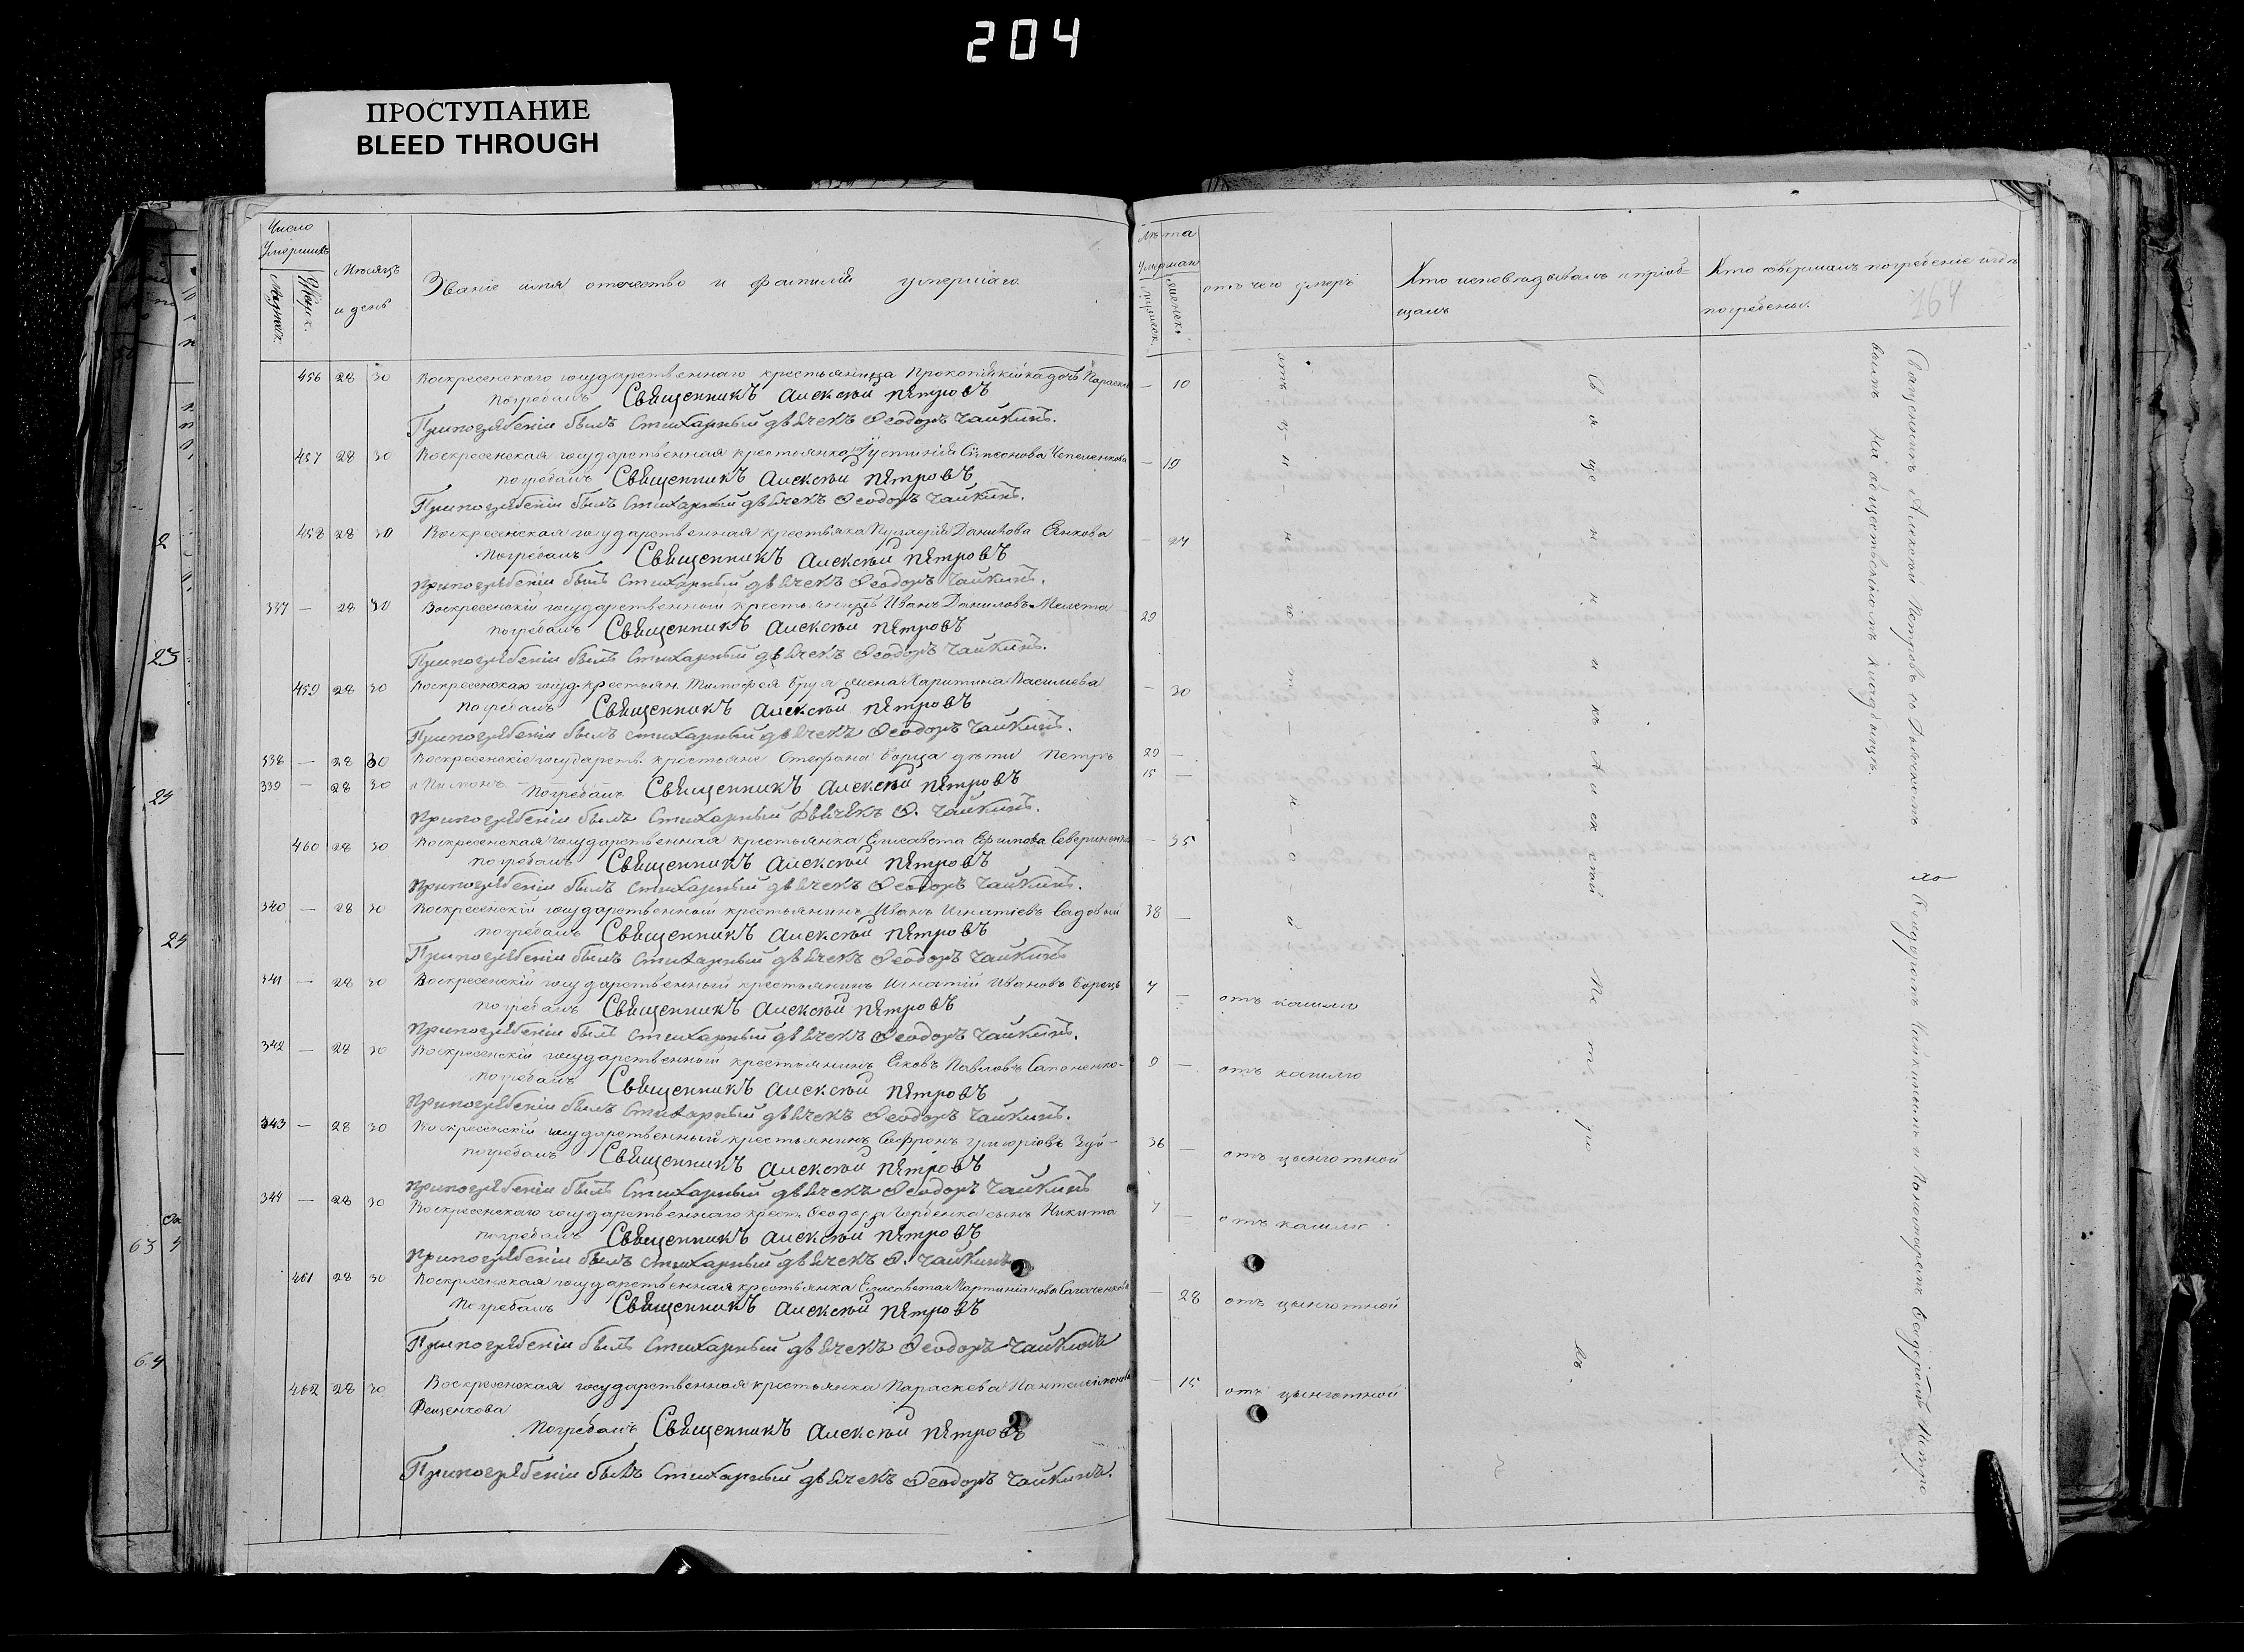 204
ПРОСТУПАНИЕ
BLEED THROUGH
Число Умершихъ
Мужеск.
Женск.
Мѣсяцъ и день
Званіе имя отечество и фамилія умершаго.
Лѣта умершаго
мужеск.
женск.
отъ чего умеръ
Кто исповѣдывалъ и пріобщалъ
Кто совершалъ погребеніе и гдѣ погребены.
164
456 28 30 Воскресенскаго государственнаго крестьянина дочь — 10
погребалъ Священникъ Алексѣй Петровъ
При погребеніи былъ Стихарный дьячекъ Ѳеодоръ Чайкинъ.
457 28 30 Воскресенская государственная крестьянка Іустинія Симеонова — 19
погребалъ Священникъ Алексѣй Петровъ
При погребеніи былъ Стихарный дьячекъ Ѳеодоръ Чайкинъ.
458 28 30 Воскресенская государственная крестьянка Данилова — 24
Погребалъ Священникъ Алексѣй Петровъ
При погребеніи былъ Стихарный дьячекъ Ѳеодоръ Чайкинъ.
337 — 28 30 Воскресенскій государственный крестьянинъ Иванъ Даниловъ Мелета 29
погребалъ Священникъ Алексѣй Петровъ
При погребеніи былъ Стихарный дьячекъ Ѳеодоръ Чайкинъ.
459 28 30 Воскресенскаго госуд. крестьян. Тимофея жена Харитина Василиева — 30
Погребалъ Священникъ Алексѣй Петровъ
При погребеніи былъ стихарный дьячекъ Ѳеодоръ Чайкинъ.
338 — 28 30 Воскресенскіе государств. крестьяне Стефана Борца дѣти Петръ 29 —
339 — 28 30 и Пименъ Погребалъ Священникъ Алексѣй Петровъ 15 —
При погребеніи былъ Стихарный Дьячекъ Ѳ. Чайкинъ.
460 28 30 Воскресенская государственная крестьянка Елисавета Ефимова — 35
погребалъ Священникъ Алексѣй Петровъ
При погребеніи былъ стихарный дьячекъ Ѳеодоръ Чайкинъ.
340 — 28 30 Воскресенскій государственный крестьянинъ Иванъ Игнатіевъ Садовый 38 —
погребалъ Священникъ Алексѣй Петровъ
При погребеніи былъ Стихарный дьячекъ Ѳеодоръ Чайкинъ
341 — 28 30 Воскресенскій государственный крестьянинъ Игнатій Ивановъ Борецъ 4 — отъ кашлю
погребалъ Священникъ Алексѣй Петровъ
При погребеніи былъ Стихарный дьячекъ Ѳеодоръ Чайкинъ.
342 — 28 30 Воскресенскій государственный крестьянинъ Павловъ Сапоненко 9 — отъ кашлю
погребалъ Священникъ Алексѣй Петровъ
При погребеніи былъ Стихарный дьячекъ Ѳеодоръ Чайкинъ.
343 — 28 30 Воскресенскій государственный крестьянинъ Софронъ Григоріевъ Зуй 36 — отъ цынготной
погребалъ Священникъ Алексѣй Петровъ
При погребеніи былъ Стихарный дьячекъ Ѳеодоръ Чайкинъ
344 — 28 30 Воскресенскаго государственнаго крест. Ѳеодора Горбенка сынъ Никита — отъ кашлю
погребалъ Священникъ Алексѣй Петровъ
При погребеніи былъ стихарный дьячекъ Ѳ. Чайкинъ
461 28 30 Воскресенская государственная крестьянка Елисавета Мартиніанова — 28 отъ цынготной
Погребалъ Священникъ Алексѣй Петровъ
При погребеніи былъ Стихарный дьячекъ Ѳеодоръ Чайкинъ
462 28 30 Воскресенская государственная крестьянка Параскева Пантелеимонова — 15 отъ цынготной
Фещенкова
Погребалъ Священникъ Алексѣй Петровъ
При погребеніи былъ Стихарный дьячекъ Ѳеодоръ Чайкинъ.
отъ цынготной
Священникъ Алексѣй Петровъ
Священникъ Алексѣй Петровъ съ Ѳеодоромъ Чайкинымъ и Пономаремъ Петро
вымъ на общественномъ кладбищѣ
2
23
24
24
63
64